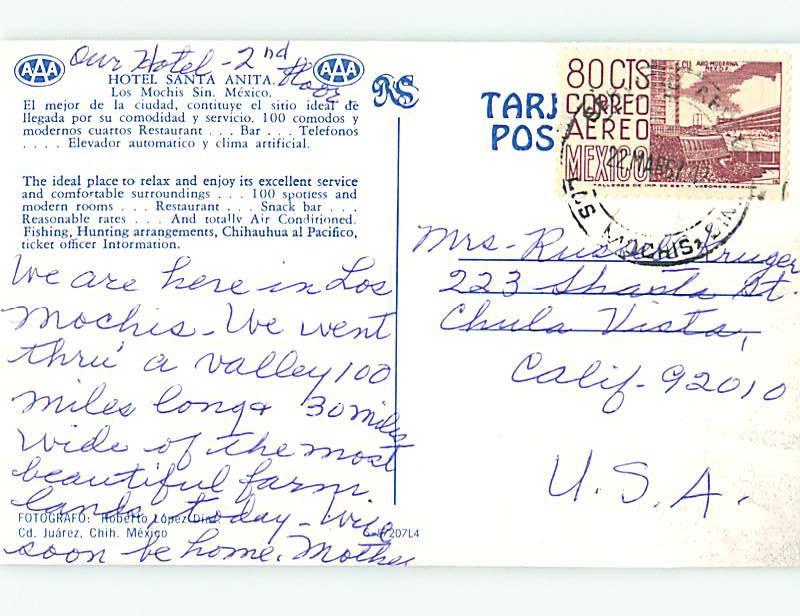 Our Hotel - 2nd floor
AAA
AAA
HOTEL SANTA ANITA.
Los Mochis Sin. México.
El mejor de la ciudad, contituye el sitio ideal de
llegada por su comodidad y servicio. 100 comodos y
modernos cuartos Restaurant . . . Bar . . . Telefonos
. . . . Elevador automatico y clima artificial.
The ideal place to relax and enjoy its excellent service
and comfortable surroundings . . . 100 spotless and
modern rooms . . . Restaurant . . . Snack bar . . .
Reasonable rates . . . And totally Air Conditioned.
Fishing, Hunting arrangements, Chihauhua al Pacífico,
ticket officer Information.
We are here in Los
Mochis - We went
thru a valley 100
miles long & 30 miles
wide of the most
beautiful farm
lands, today - We'll
soon be home. Mother
FOTOGRAFO: Roberto López Díaz
Cd. Juárez, Chih. México
207L4
RS
TARJ
POS
80 CTS
CORREO
AEREO
MEXICO
ARQ. MODERNA
MEX. D.F.
TALLERES DE IMP. DE EST. Y VALORES-MEXICO
22 MAR 67
LOS MOCHIS, SIN
Mrs. Russell Kruger
223 Shasta St.
Chula Vista,
Calif. 92010
U.S.A.